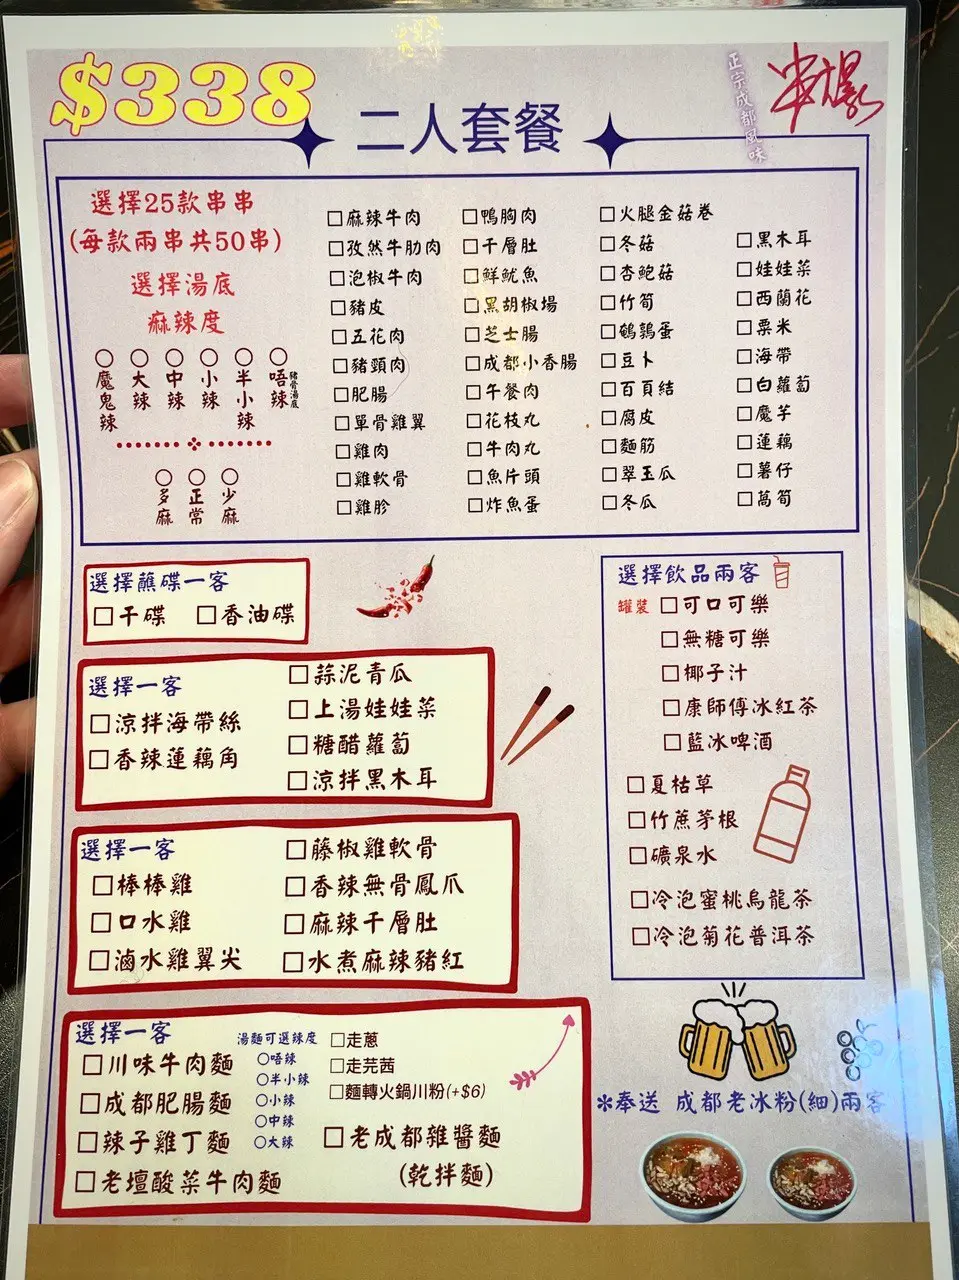 $338
二人套餐
正宗成都風味
串爆
選擇25款串串
(每款兩串共50串)
選擇湯底
麻辣度
○魔鬼辣 ○大辣 ○中辣 ○小辣 ○半小辣 ○唔辣 豬骨湯底
○多麻 ○正常 ○少麻
□麻辣牛肉
□孜然牛肋肉
□泡椒牛肉
□豬皮
□五花肉
□豬頸肉
□肥腸
□單骨雞翼
□雞肉
□雞軟骨
□雞胗
□鴨胸肉
□千層肚
□鮮魷魚
□黑胡椒場
□芝士腸
□成都小香腸
□午餐肉
□花枝丸
□牛肉丸
□魚片頭
□炸魚蛋
□火腿金菇卷
□冬菇
□杏鮑菇
□竹筍
□鵪鶉蛋
□豆卜
□百頁結
□腐皮
□麵筋
□翠玉瓜
□冬瓜
□黑木耳
□娃娃菜
□西蘭花
□粟米
□海帶
□白蘿蔔
□魔芋
□蓮藕
□薯仔
□萵筍
選擇蘸碟一客
□干碟 □香油碟
選擇一客
□涼拌海帶絲
□香辣蓮藕角
□蒜泥青瓜
□上湯娃娃菜
□糖醋蘿蔔
□涼拌黑木耳
選擇一客
□棒棒雞
□口水雞
□滷水雞翼尖
□藤椒雞軟骨
□香辣無骨鳳爪
□麻辣千層肚
□水煮麻辣豬紅
選擇一客
□川味牛肉麵
□成都肥腸麵
□辣子雞丁麵
□老壇酸菜牛肉麵
湯麵可選辣度
○唔辣
○半小辣
○小辣
○中辣
○大辣
□走蔥
□走芫茜
□麵轉火鍋川粉(+$6)
□老成都雜醬麵
(乾拌麵)
選擇飲品兩客
罐裝 □可口可樂
□無糖可樂
□椰子汁
□康師傅冰紅茶
□藍冰啤酒
□夏枯草
□竹蔗茅根
□礦泉水
□冷泡蜜桃烏龍茶
□冷泡菊花普洱茶
*奉送 成都老冰粉(細)兩客